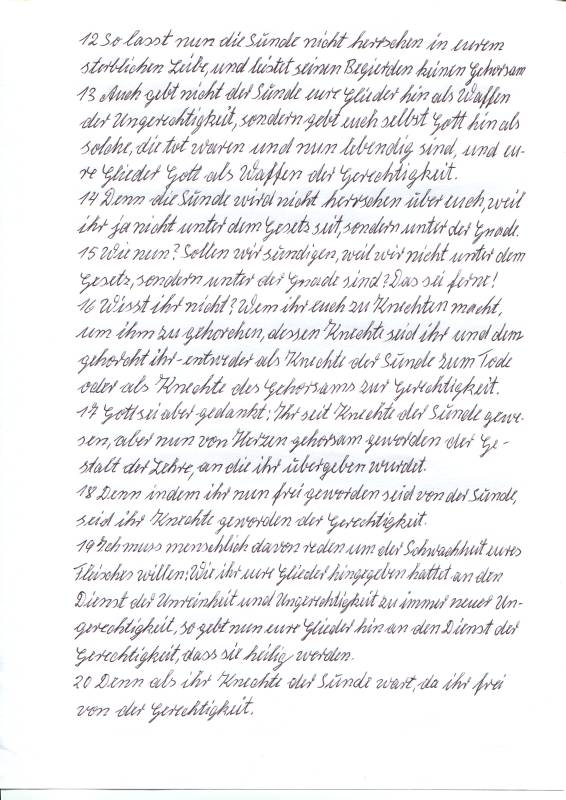 12 So lasst nun die Sünde nicht herrschen in eurem
sterblichen Leibe, und leistet seinen Begierden keinen Gehorsam
13 Auch gebt nicht der Sünde eure Glieder hin als Waffen
der Ungerechtigkeit, sondern gebt euch selbst Gott hin als
solche, die tot waren und nun lebendig sind, und eu-
re Glieder Gott als Waffen der Gerechtigkeit.
14 Denn die Sünde wird nicht herrschen über euch, weil
ihr ja nicht unter dem Gesetz seit, sondern unter der Gnade.
15 Wie nun? Sollen wir sündigen, weil wir nicht unter dem
Gesetz, sondern unter der Gnade sind? Das sei ferne!
16 Wisst ihr nicht? Wem ihr euch zu Knechten macht,
um ihm zu gehorchen, dessen Knechte seid ihr und dem
gehorcht ihr - entweder als Knechte der Sünde zum Tode
oder als Knechte des Gehorsams zur Gerechtigkeit.
17 Gott sei aber gedankt: Ihr seit Knechte der Sünde gewe-
sen, aber nun von Herzen gehorsam geworden der Ge-
stalt der Lehre, an die ihr übergeben wurdet.
18 Denn indem ihr nun frei geworden seid von der Sünde,
seid ihr Knechte geworden der Gerechtigkeit.
19 Ich muss menschlich davon reden um der Schwachheit eures
Fleisches willen: Wie ihr eure Glieder hingegeben hattet an den
Dienst der Unreinheit und Ungerechtigkeit zu immer neuer Un-
gerechtigkeit, so gebt nun eure Glieder hin an den Dienst der
Gerechtigkeit, dass sie heilig werden.
20 Denn als ihr Knechte der Sünde wart, da ihr frei
von der Gerechtigkeit.